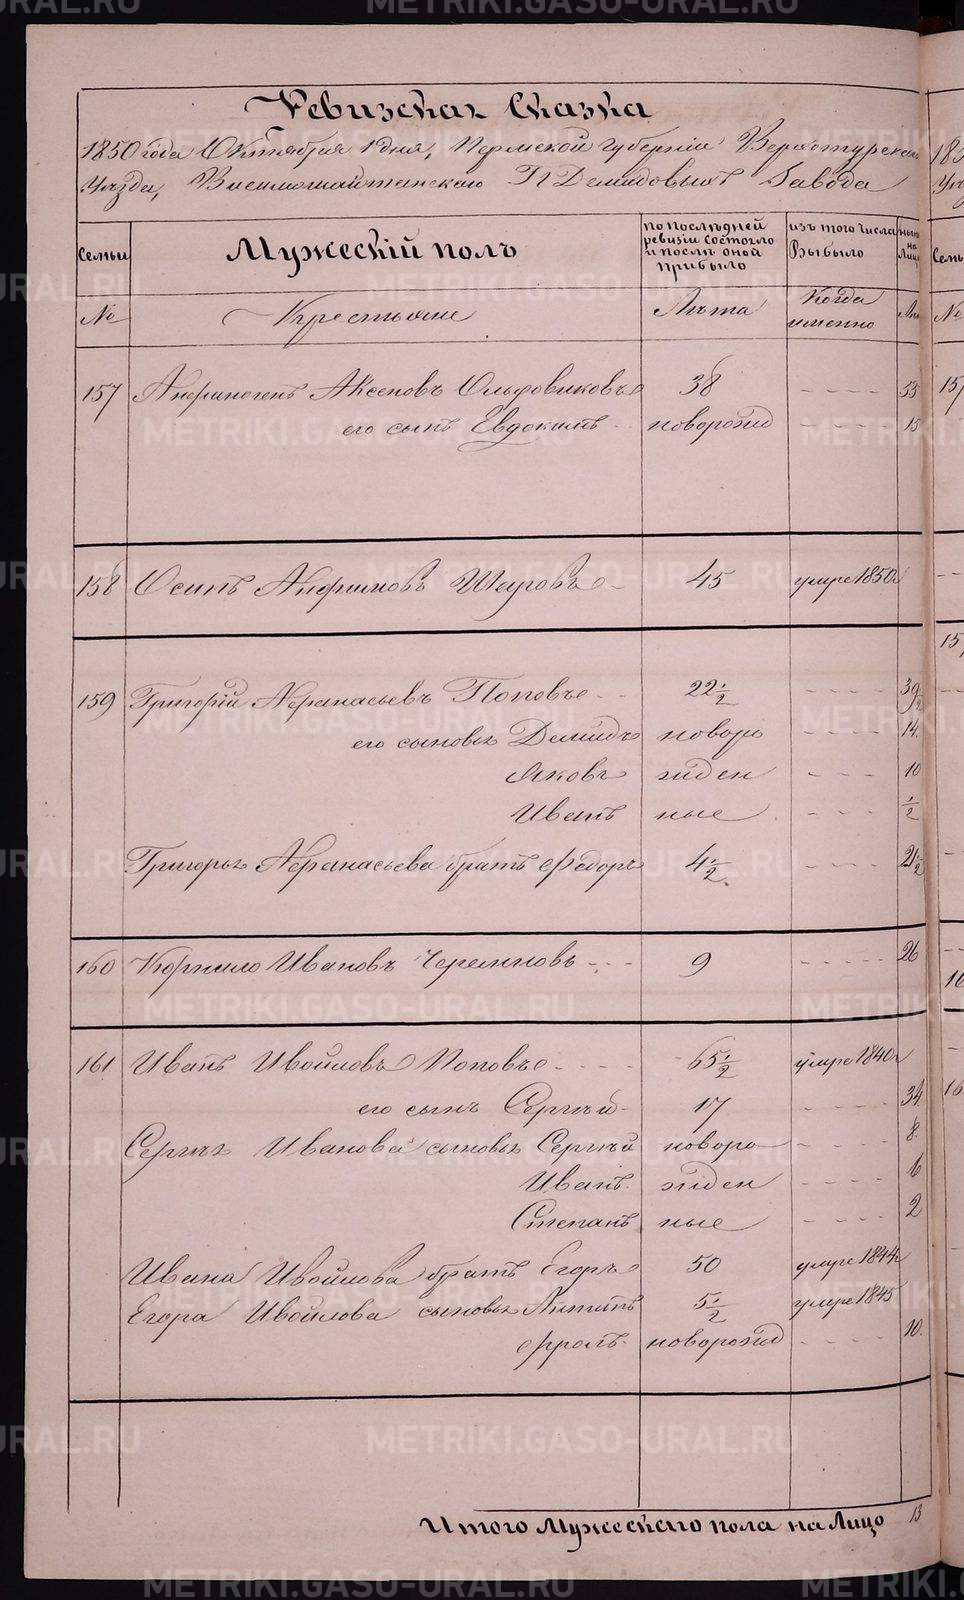 METRIKI.GASO-URAL.RU
Ревизская Сказка
1850 года Октября 1 дня, Пермской губернии Верхотурскаго
Уѣзда, Висимошайтанскаго ГГ Демидовыхъ Завода
Семьи Мужескій полъ по последней ревизіи состояло и послѣ оной прибыло изъ того числа Выбыло нынѣ на Лицо
№ Крестьяне Лѣта Когда именно Лѣта
157 Анфиногенъ Аксеновъ 38 - - - - 55
его сынъ Евдокимъ новорожд - - - - 15
158 Осипъ Анфимовъ 45 умре 1850
159 Григорій Афанасьевъ Поповъ 22½ - - - - 39½
его сыновья Демидъ новоро - - - - 14
Яковъ жден - - - - 10
Иванъ ные - - - - ½
Григорья Афанасьева братъ Федоръ 4½ - - - - 21½
160 Корнило Ивановъ Черемновъ 9 - - - - 26
161 Иванъ Ивойловъ Поповъ 65½ умре 1840
его сынъ Сергѣй 17 - - - - 34
Сергѣя Иванова сыновья Сергѣй новоро - - - - 8
Иванъ жден - - - - 6
Степанъ ные - - - - 2
Ивана Ивойлова братъ Егоръ 50 умре 1844
Егора Ивойлова сыновья Антипъ 5½ умре 1845
Фролъ новорожд - - - - 10
Итого Мужескаго пола на Лицо 13